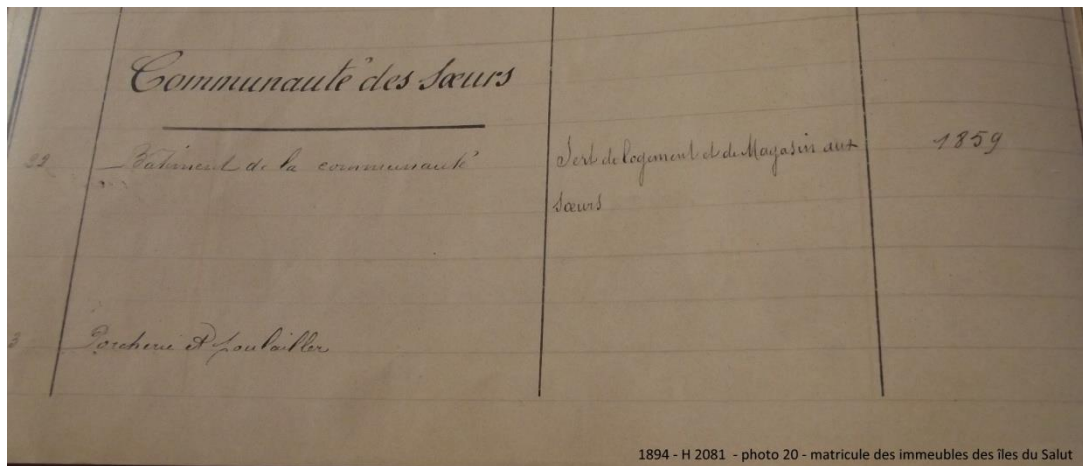 Communauté des Sœurs
22 Batiment de la communauté Sert de logement et de Magasin aux 1859
Sœurs
3 Porcherie et poulailler
1894 - H 2081 - photo 20 - matricule des immeubles des îles du Salut